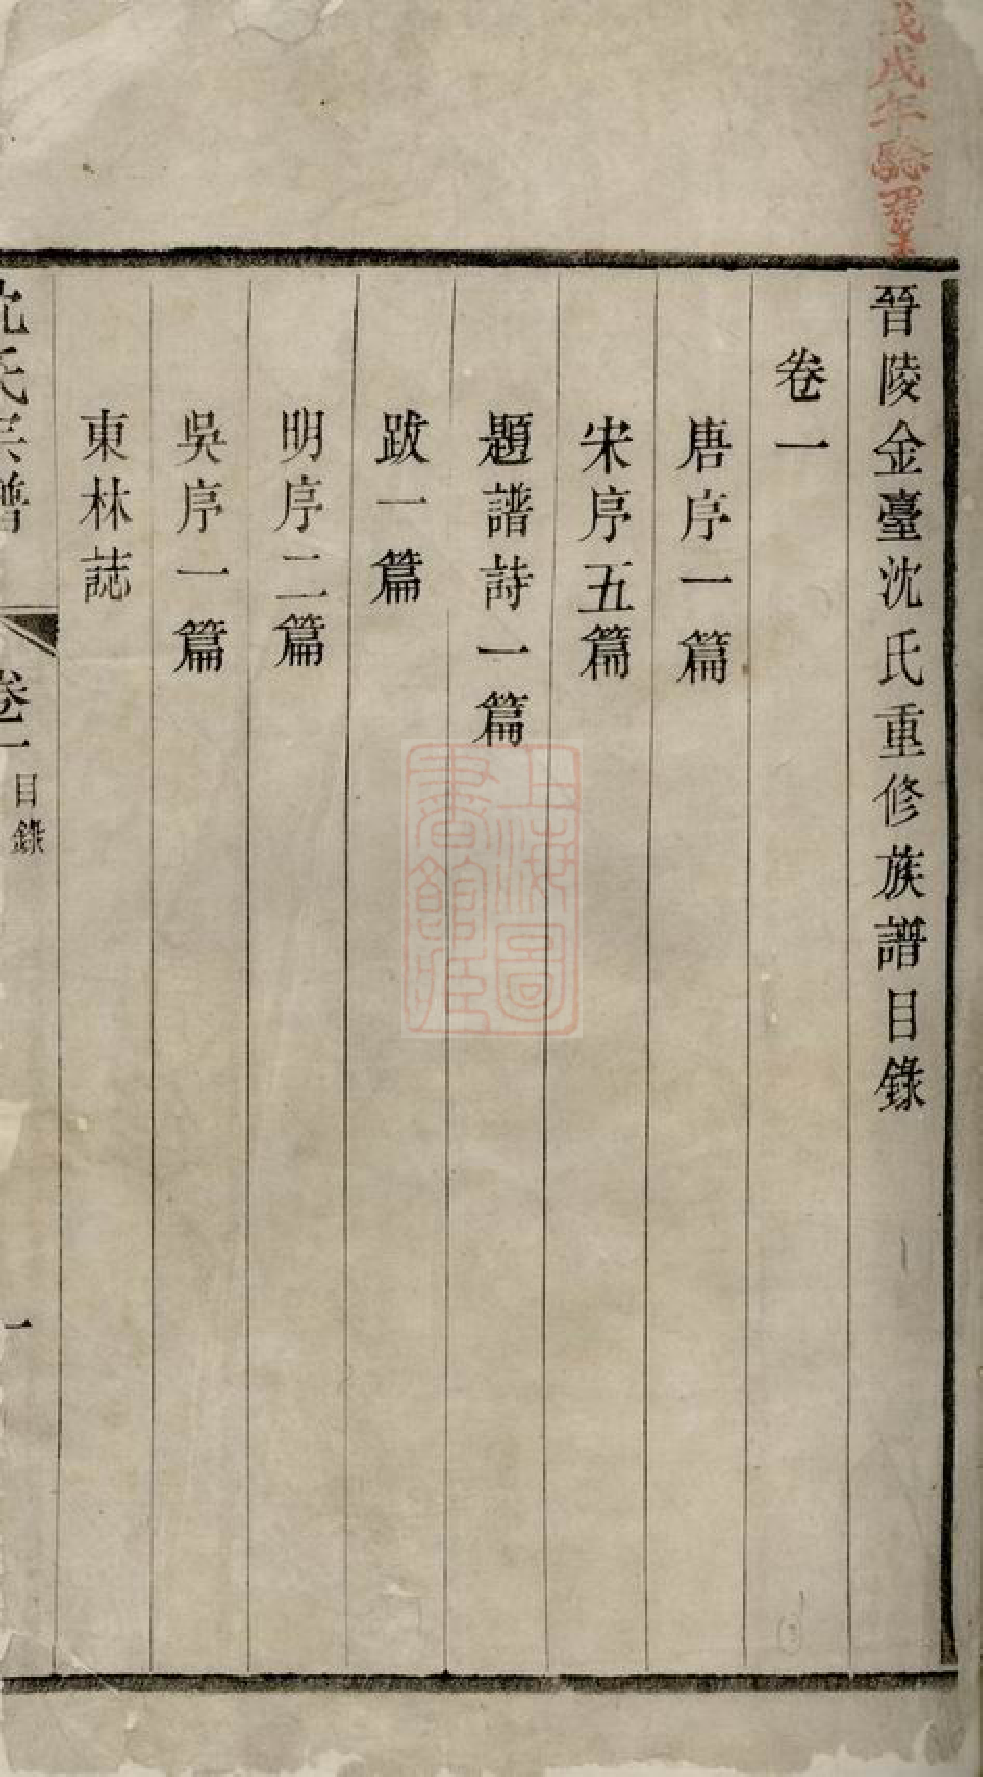 戊戌年騐訖
晉陵金臺沈氏重修族譜目錄
卷一
唐序一篇
宋序五篇
題譜詩一篇
跋一篇
明序二篇
吳序一篇
東林誌
沈氏宗譜
卷一
目錄
一
上海圖
書館藏